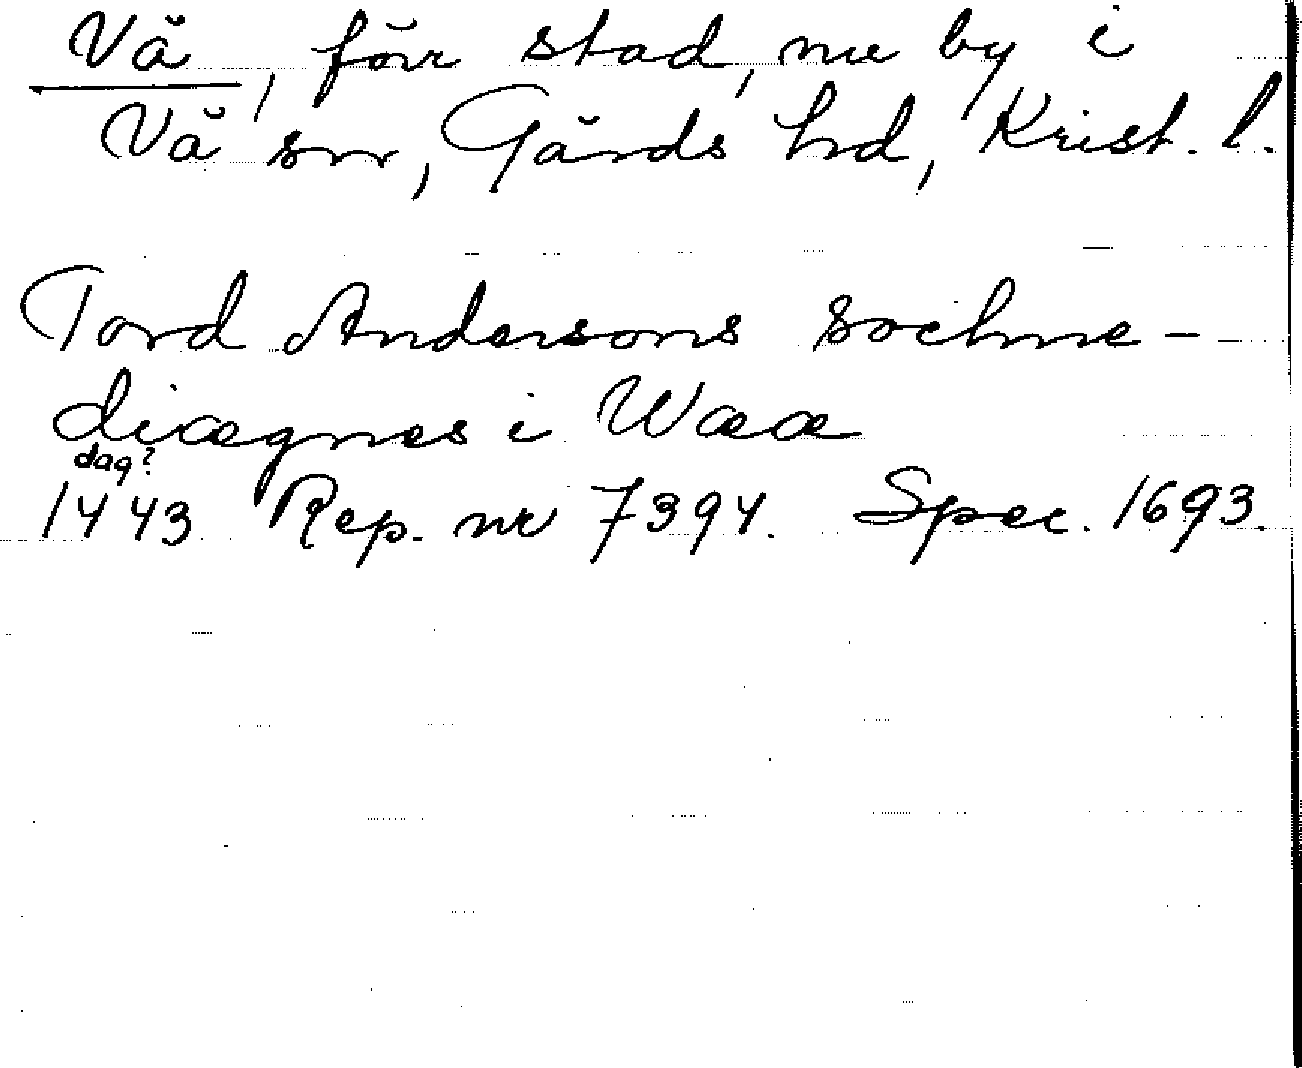 Vä, förr stad, nu by i
Vä sn, Gärds hd, Krist. l.
Tord Andersons sochne-
diægnes i Wææ
dag?
1443 Rep. nr 7394. Spec. 1693.